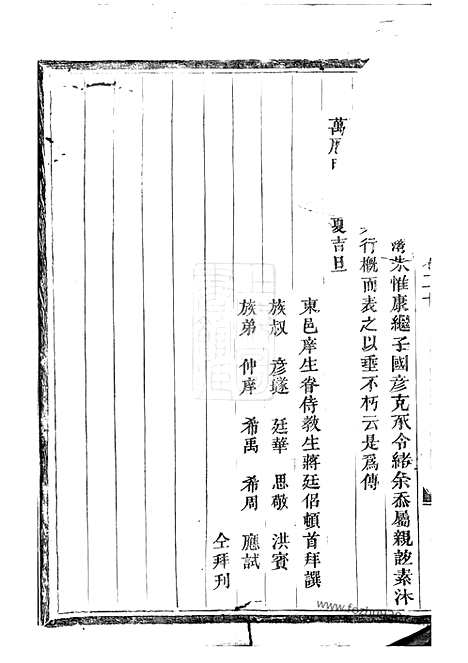 朱惟康繼子國彦克承令緒余忝屬親誼素沐
行概而表之以垂不朽云是爲傳
萬 夏吉旦
東邑庠生眷侍教生蔣廷侶頓首拜譔
族叔 彦璲 廷華 思敬 洪賓
族弟 仲庠 希禹 希周 應試
仝拜刊